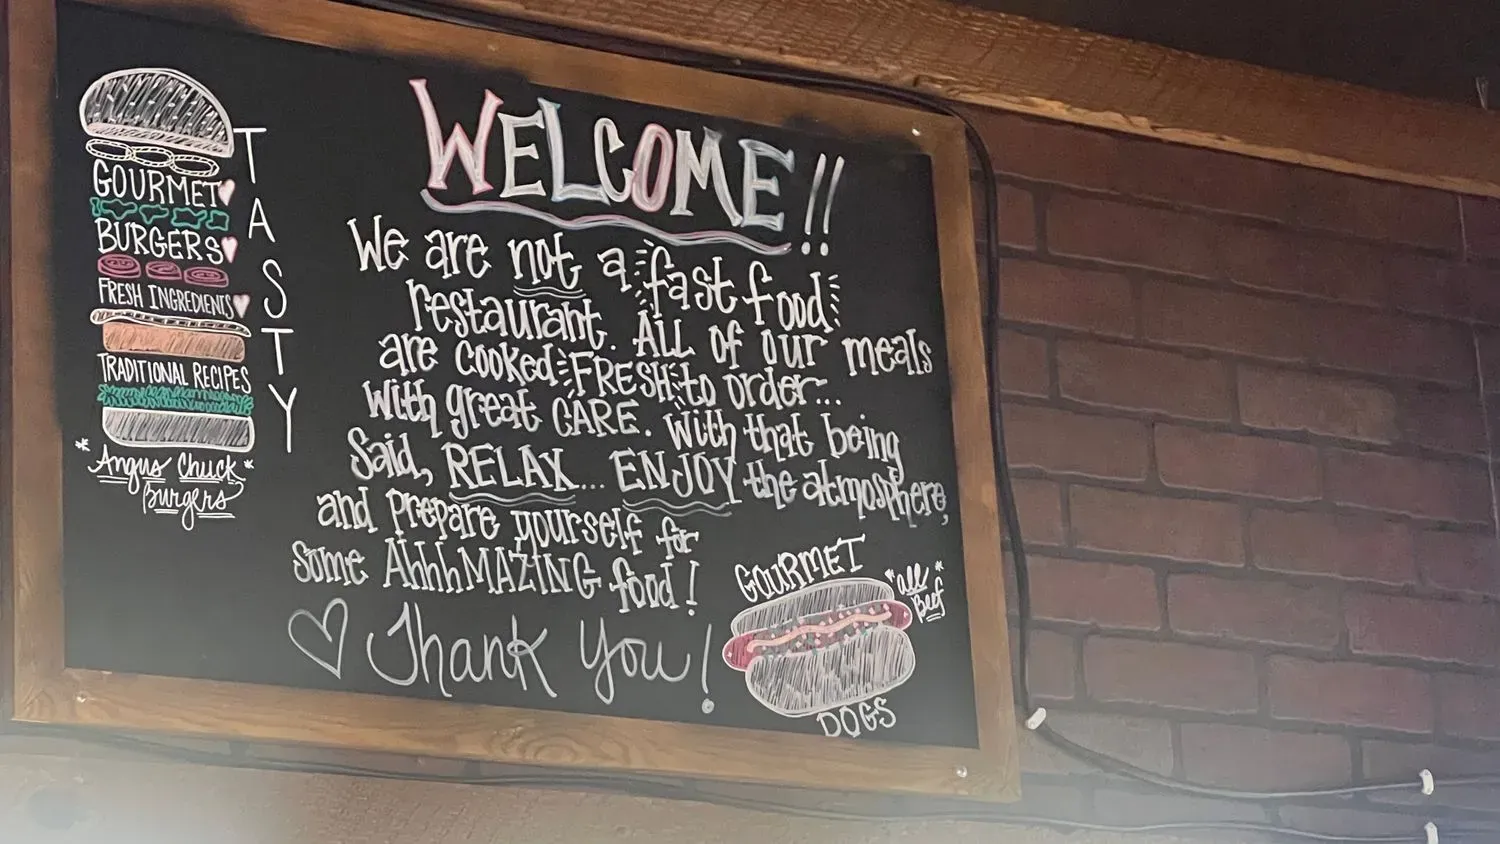 GOURMET
BURGERS
FRESH INGREDIENTS
TRADITIONAL RECIPES
*Angus Chuck*
Burgers
TASTY
WELCOME!!
We are not a fast food
restaurant. ALL of our meals
are cooked FRESH to order...
with great CARE. With that being
Said, RELAX... ENJOY the atmosphere,
and prepare yourself for
some AhhhMAZING food!
Thank You!
GOURMET
"all
Beef"
DOGS